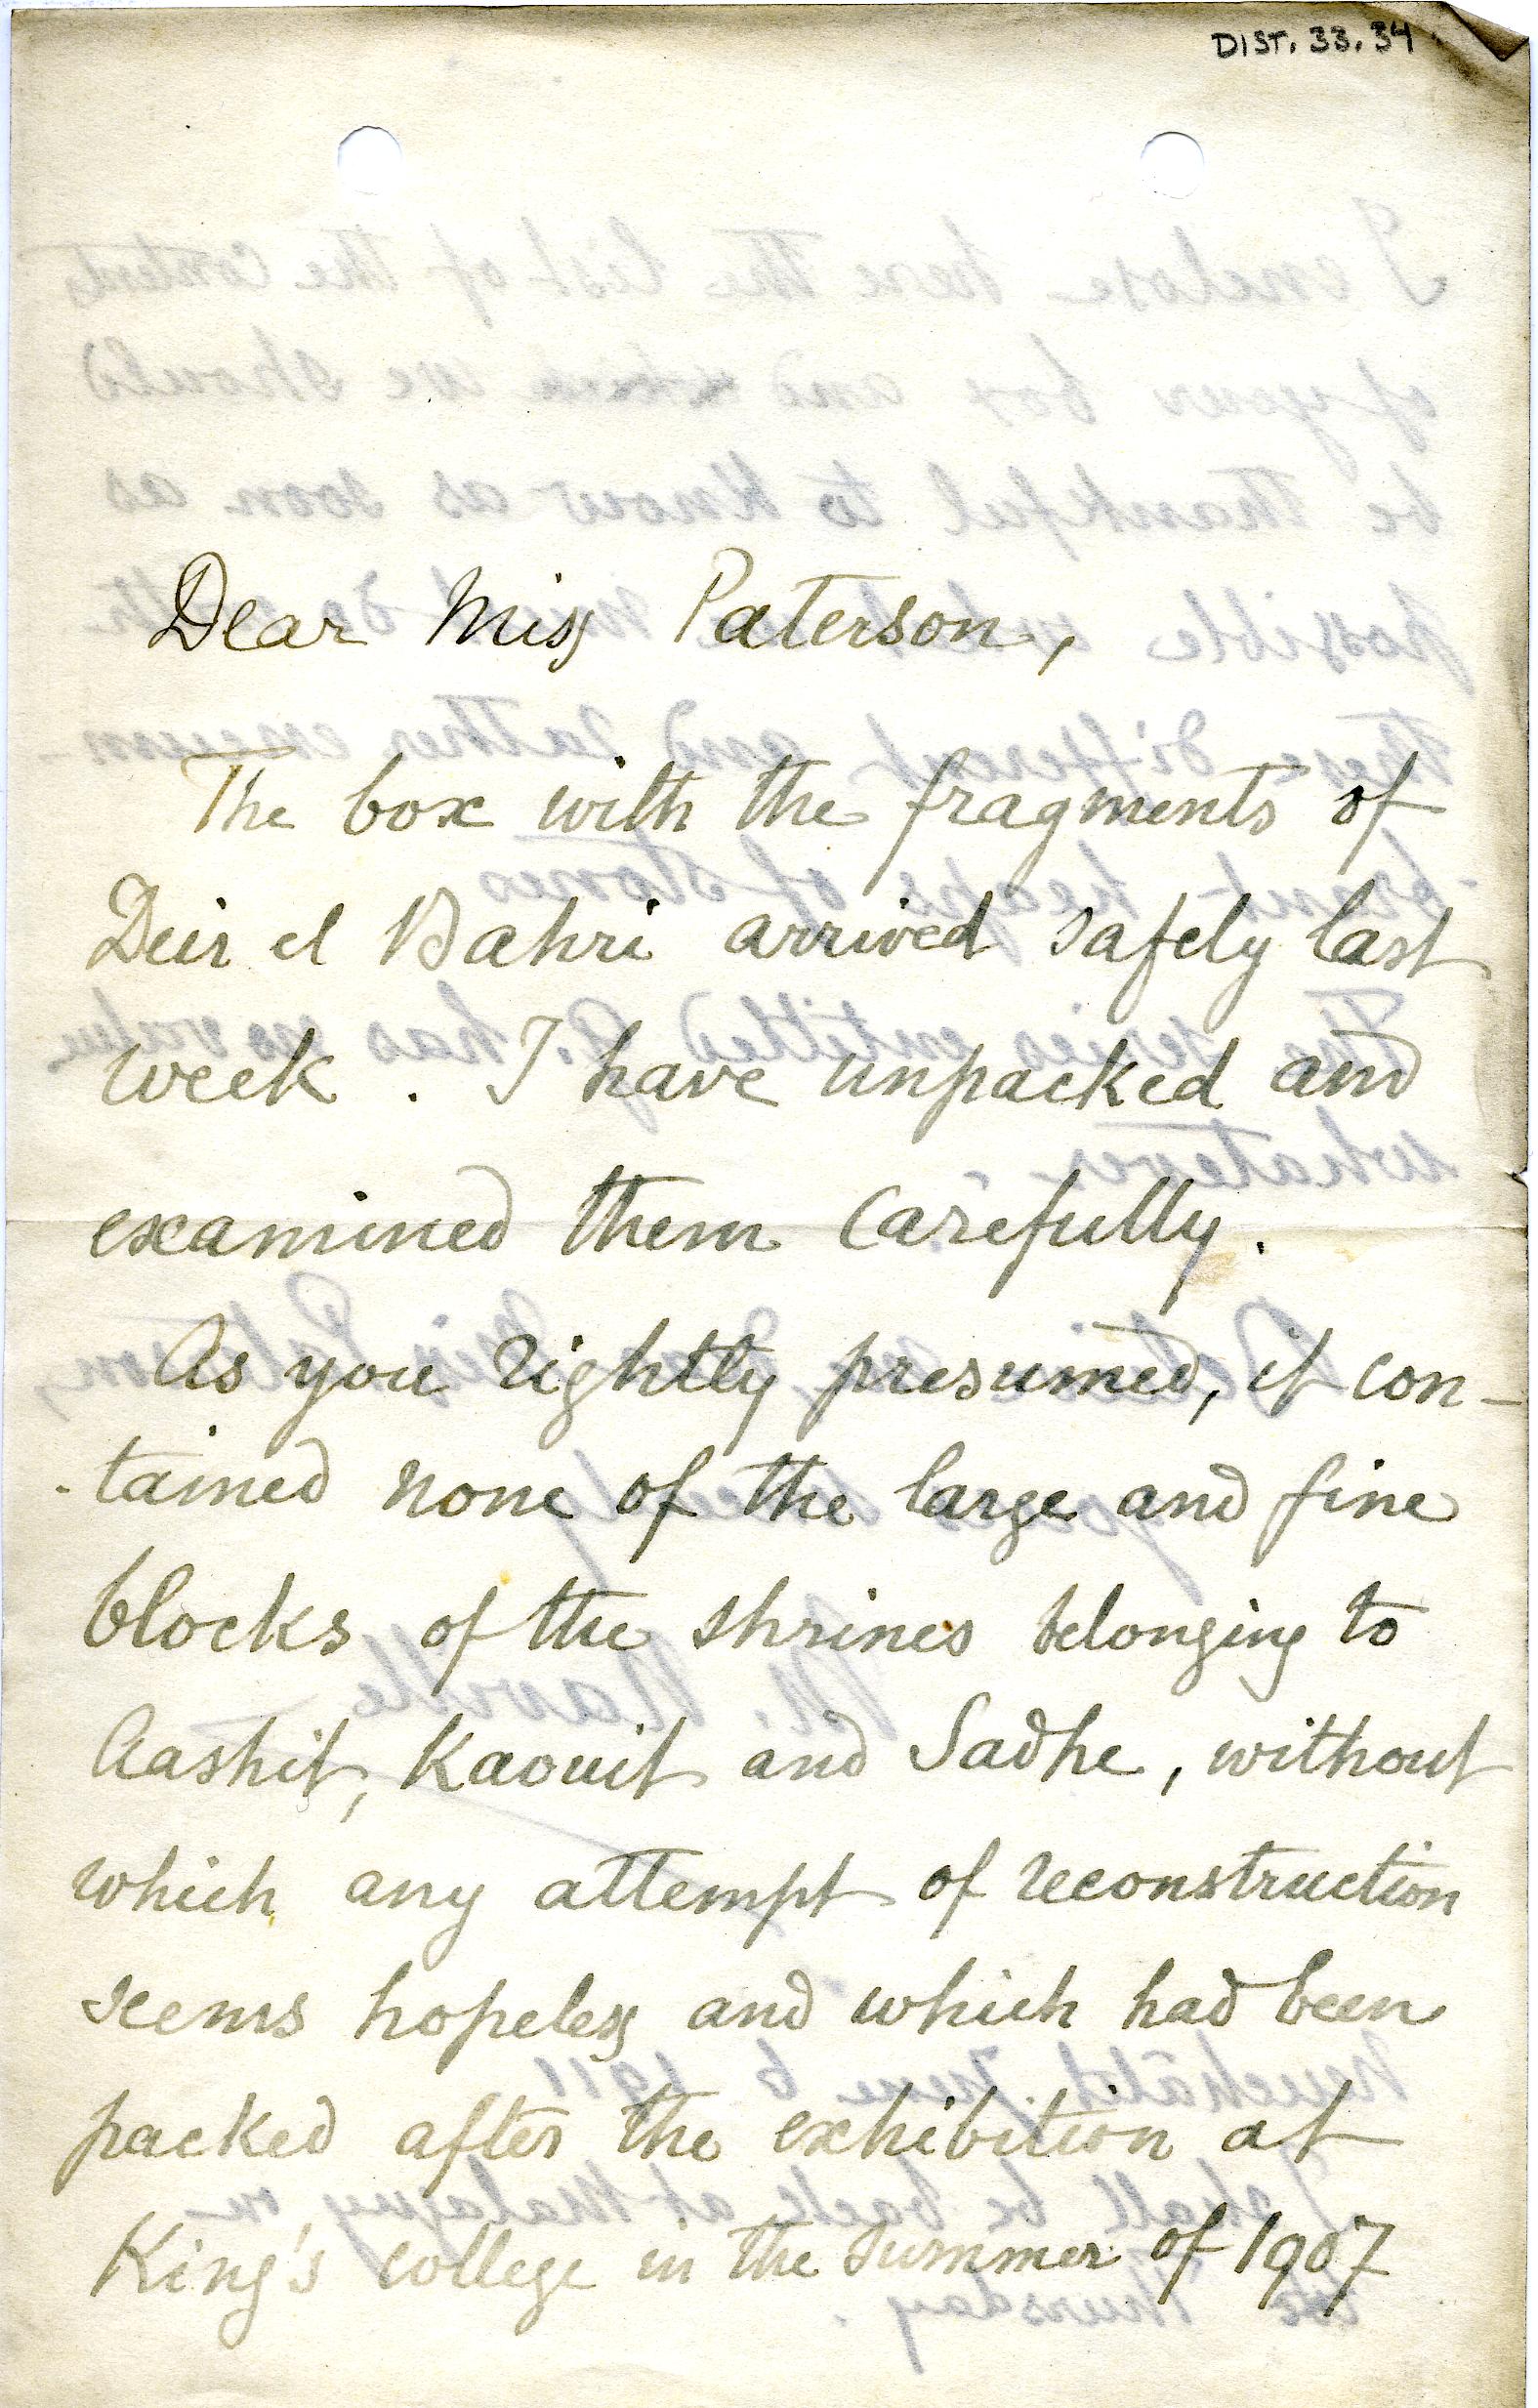 DIST. 33. 34
Dear Miss Paterson,
The box with the fragments of
Deir el Bahri arrived safely last
week. I have unpacked and
examined them carefully.
As you rightly presumed, it con-
-tained none of the large and fine
blocks of the shrines belonging to
Aashit, Kaouit and Sadhe, without
which any attempt of reconstruction
seems hopeless and which had been
packed after the exhibition at
King's college in the summer of 1907